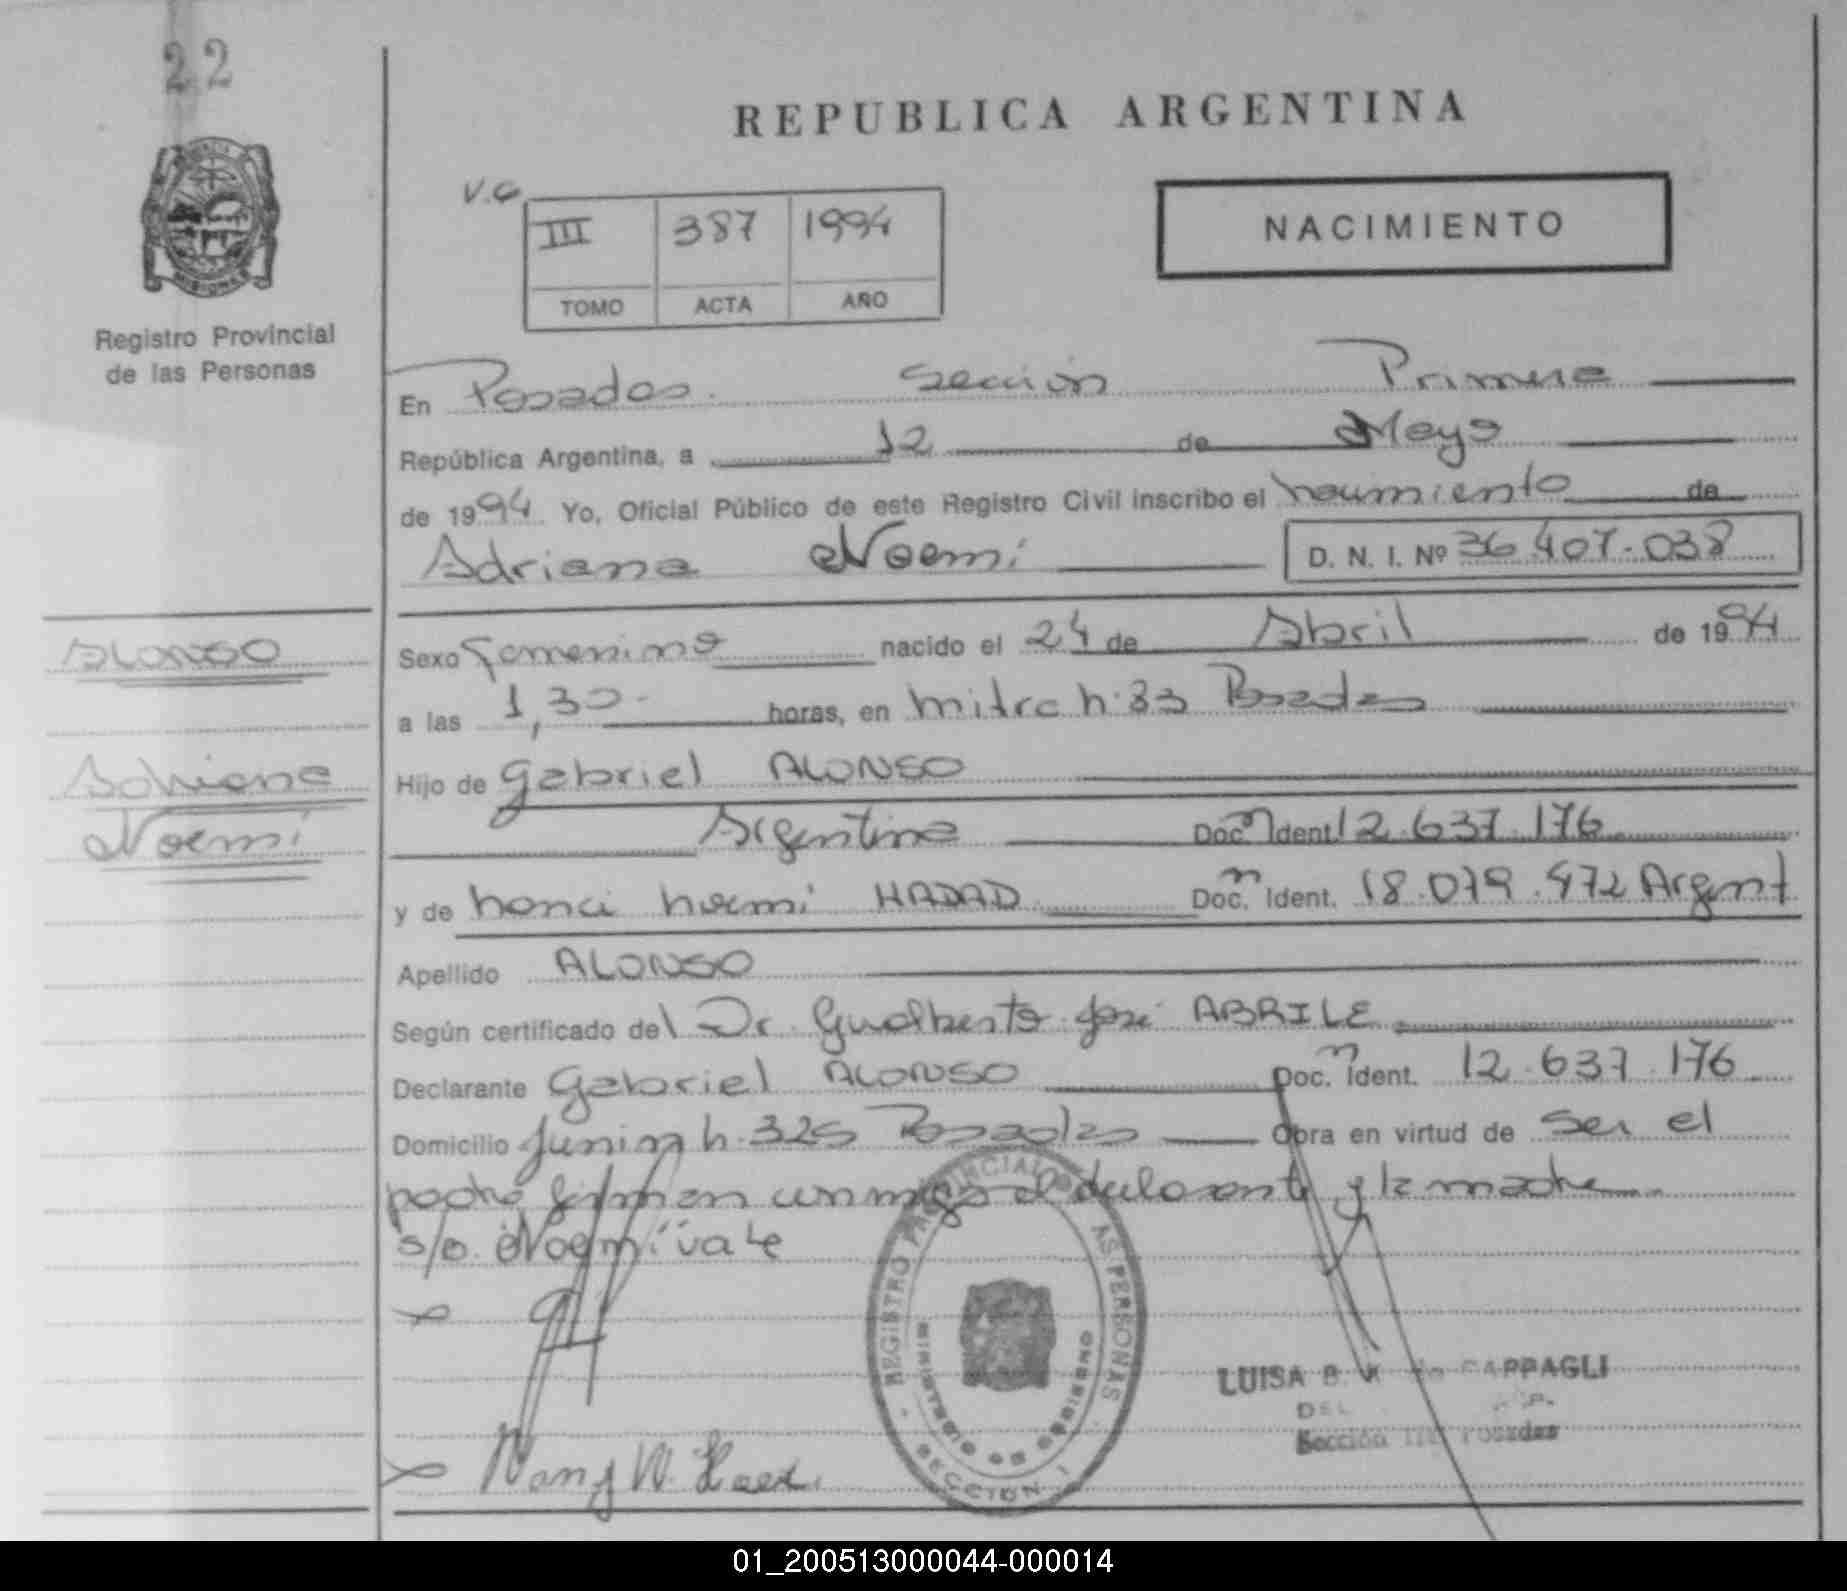 22
REPUBLICA ARGENTINA
V.C
III 387 1994
TOMO ACTA AÑO
NACIMIENTO
MISIONES
Registro Provincial
de las Personas
En Posadas. Sección Primera
República Argentina, a 12 de Mayo
de 1994 Yo, Oficial Público de este Registro Civil inscribo el nacimiento de
Adriana Noemi D. N. I. Nº 36.407.038
ALONSO
Adriana
Noemi
Sexo Femenino nacido el 24 de Abril de 1994
a las 1,30 horas, en mitre n: 83 Posadas
Hijo de Gabriel ALONSO
Argentino Doc. n Ident. 12.637.176
y de nanci noemi HADAD Doc. n Ident. 18.079.472 Argent
Apellido ALONSO
Según certificado del Dr. Gualberto José ABRILE
Declarante Gabriel ALONSO Doc. n Ident. 12.637.176
Domicilio Junin n. 325 Posadas Obra en virtud de ser el
padre firman conmigo el declarante y la madre
s/b. Noemi vale
REGISTRO PROVINCIAL AS PERSONAS
MINISTERIO DE GOBIERNO
SECCION I
LUISA B. CAPPAGLI
DEL
Sección III Posadas
01_200513000044-000014